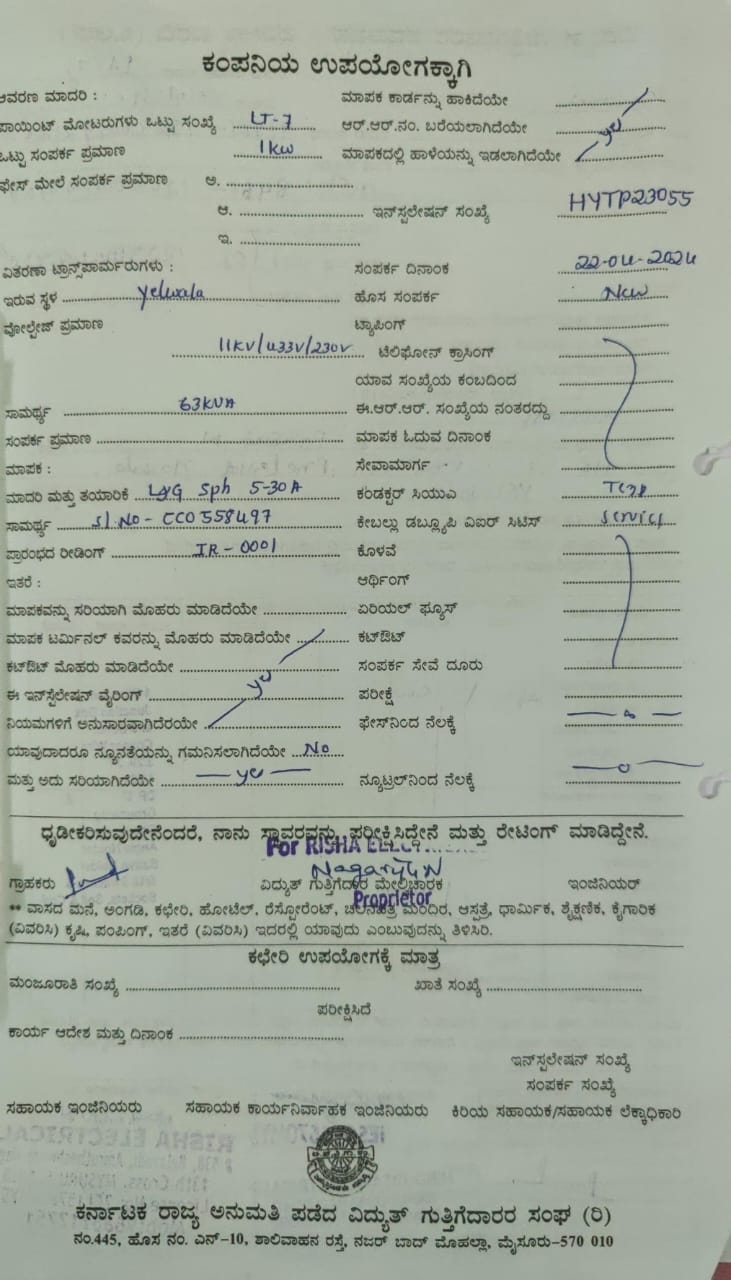 ಕಂಪನಿಯ ಉಪಯೋಗಕ್ಕಾಗಿ
ಆವರಣ ಮಾದರಿ : ಮಾಪಕ ಕಾರ್ಡನ್ನು ಹಾಕಿದೆಯೇ
ಪಾಯಿಂಟ್ ಮೋಟರುಗಳು ಒಟ್ಟು ಸಂಖ್ಯೆ LT-7 ಆರ್.ಆರ್.ನಂ. ಬರೆಯಲಾಗಿದೆಯೇ yes
ಒಟ್ಟು ಸಂಪರ್ಕ ಪ್ರಮಾಣ 1kw ಮಾಪಕದಲ್ಲಿ ಹಾಳೆಯನ್ನು ಇಡಲಾಗಿದೆಯೇ
ಫೇಸ್ ಮೇಲೆ ಸಂಪರ್ಕ ಪ್ರಮಾಣ ಅ.
ಆ. ಇನ್‌ಸ್ಟಲೇಷನ್ ಸಂಖ್ಯೆ HYTP23055
ಇ.
ವಿತರಣಾ ಟ್ರಾನ್ಸ್‌ಪಾರ್ಮರುಗಳು : ಸಂಪರ್ಕ ದಿನಾಂಕ 22-04-2024
ಇರುವ ಸ್ಥಳ Yelwala ಹೊಸ ಸಂಪರ್ಕ New
ವೋಲ್ಟೇಜ್ ಪ್ರಮಾಣ ಟ್ಯಾಪಿಂಗ್
11KV/433V/230V ಟೆಲಿಫೋನ್ ಕ್ರಾಸಿಂಗ್
ಯಾವ ಸಂಖ್ಯೆಯ ಕಂಬದಿಂದ
ಸಾಮರ್ಥ್ಯ 63KVA ಈ.ಆರ್.ಆರ್. ಸಂಖ್ಯೆಯ ನಂತರದ್ದು
ಸಂಪರ್ಕ ಪ್ರಮಾಣ ಮಾಪಕ ಓದುವ ದಿನಾಂಕ
ಮಾಪಕ : ಸೇವಾಮಾರ್ಗ
ಮಾದರಿ ಮತ್ತು ತಯಾರಿಕೆ L&G Sph 5-30A ಕಂಡಕ್ಟರ್ ಸಿಯುಎ
ಸಾಮರ್ಥ್ಯ Sl.No- CCO558497 ಕೇಬಲ್ಲು ಡಬ್ಲ್ಯೂಪಿ ವಿಐರ್ ಸಿಟಿಸ್ Service
ಪ್ರಾರಂಭದ ರೀಡಿಂಗ್ IR-0001 ಕೊಳವೆ
ಇತರೆ : ಆರ್ಥಿಂಗ್
ಮಾಪಕವನ್ನು ಸರಿಯಾಗಿ ಮೊಹರು ಮಾಡಿದೆಯೇ ಏರಿಯಲ್ ಫ್ಯೂಸ್
ಮಾಪಕ ಟರ್ಮಿನಲ್ ಕವರನ್ನು ಮೊಹರು ಮಾಡಿದೆಯೇ ಕಟ್‌ಔಟ್
ಕಟ್‌ಔಟ್ ಮೊಹರು ಮಾಡಿದೆಯೇ ಸಂಪರ್ಕ ಸೇವೆ ದೂರು
ಈ ಇನ್‌ಸ್ಟೆಲೇಷನ್ ವೈರಿಂಗ್ yes ಪರೀಕ್ಷೆ
ನಿಯಮಗಳಿಗೆ ಅನುಸಾರವಾಗಿದೆರಯೇ ಫೇಸ್‌ನಿಂದ ನೆಲಕ್ಕೆ
ಯಾವುದಾದರೂ ನ್ಯೂನತೆಯನ್ನು ಗಮನಿಸಲಾಗಿದೆಯೇ No
ಮತ್ತು ಅದು ಸರಿಯಾಗಿದೆಯೇ yes ನ್ಯೂಟ್ರಲ್‌ನಿಂದ ನೆಲಕ್ಕೆ
ಧೃಡೀಕರಿಸುವುದೇನೆಂದರೆ, ನಾನು ಸ್ಥಾವರವನ್ನು ಪರೀಕ್ಷಿಸಿದ್ದೇನೆ ಮತ್ತು ರೇಟಿಂಗ್ ಮಾಡಿದ್ದೇನೆ.
For RISHA ELECT
Nagaraju N
ಗ್ರಾಹಕರು ವಿದ್ಯುತ್ ಗುತ್ತಿಗೆದಾರ ಮೇಲ್ವಿಚಾರಕ ಇಂಜಿನಿಯರ್
Proprietor
** ವಾಸದ ಮನೆ, ಅಂಗಡಿ, ಕಛೇರಿ, ಹೋಟೆಲ್, ರೆಸ್ಟೋರೆಂಟ್, ಚಲನಚಿತ್ರ ಮಂದಿರ, ಆಸ್ಪತ್ರೆ, ಧಾರ್ಮಿಕ, ಶೈಕ್ಷಣಿಕ, ಕೈಗಾರಿಕ
(ವಿವರಿಸಿ) ಕೃಷಿ, ಪಂಪಿಂಗ್, ಇತರೆ (ವಿವರಿಸಿ) ಇದರಲ್ಲಿ ಯಾವುದು ಎಂಬುವುದನ್ನು ತಿಳಿಸಿರಿ.
ಕಛೇರಿ ಉಪಯೋಗಕ್ಕೆ ಮಾತ್ರ
ಮಂಜೂರಾತಿ ಸಂಖ್ಯೆ ಖಾತೆ ಸಂಖ್ಯೆ
ಪರೀಕ್ಷಿಸಿದೆ
ಕಾರ್ಯ ಆದೇಶ ಮತ್ತು ದಿನಾಂಕ
ಇನ್‌ಸ್ಟಲೇಷನ್ ಸಂಖ್ಯೆ
ಸಂಪರ್ಕ ಸಂಖ್ಯೆ
ಸಹಾಯಕ ಇಂಜಿನಿಯರು ಸಹಾಯಕ ಕಾರ್ಯನಿರ್ವಾಹಕ ಇಂಜಿನಿಯರು ಕಿರಿಯ ಸಹಾಯಕ/ಸಹಾಯಕ ಲೆಕ್ಕಾಧಿಕಾರಿ
ಕರ್ನಾಟಕ ರಾಜ್ಯ ಅನುಮತಿ ಪಡೆದ ವಿದ್ಯುತ್ ಗುತ್ತಿಗೆದಾರರ ಸಂಘ (ರಿ)
ನಂ.445, ಹೊಸ ನಂ. ಎನ್-10, ಶಾಲಿವಾಹನ ರಸ್ತೆ, ನಜರ್ ಬಾದ್ ಮೊಹಲ್ಲಾ, ಮೈಸೂರು-570 010